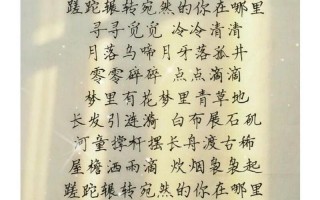 蹉跎辗转宛然的你在哪里
寻寻觅觅 冷冷清清
月落乌啼月牙落孤井
零零碎碎 点点滴滴
梦里有花梦里青草地
长发引涟漪 白布展石矶
河童撑杆摆长舟渡古稀
屋檐洒雨滴 炊烟袅袅起
蹉跎辗转宛然的你在哪里